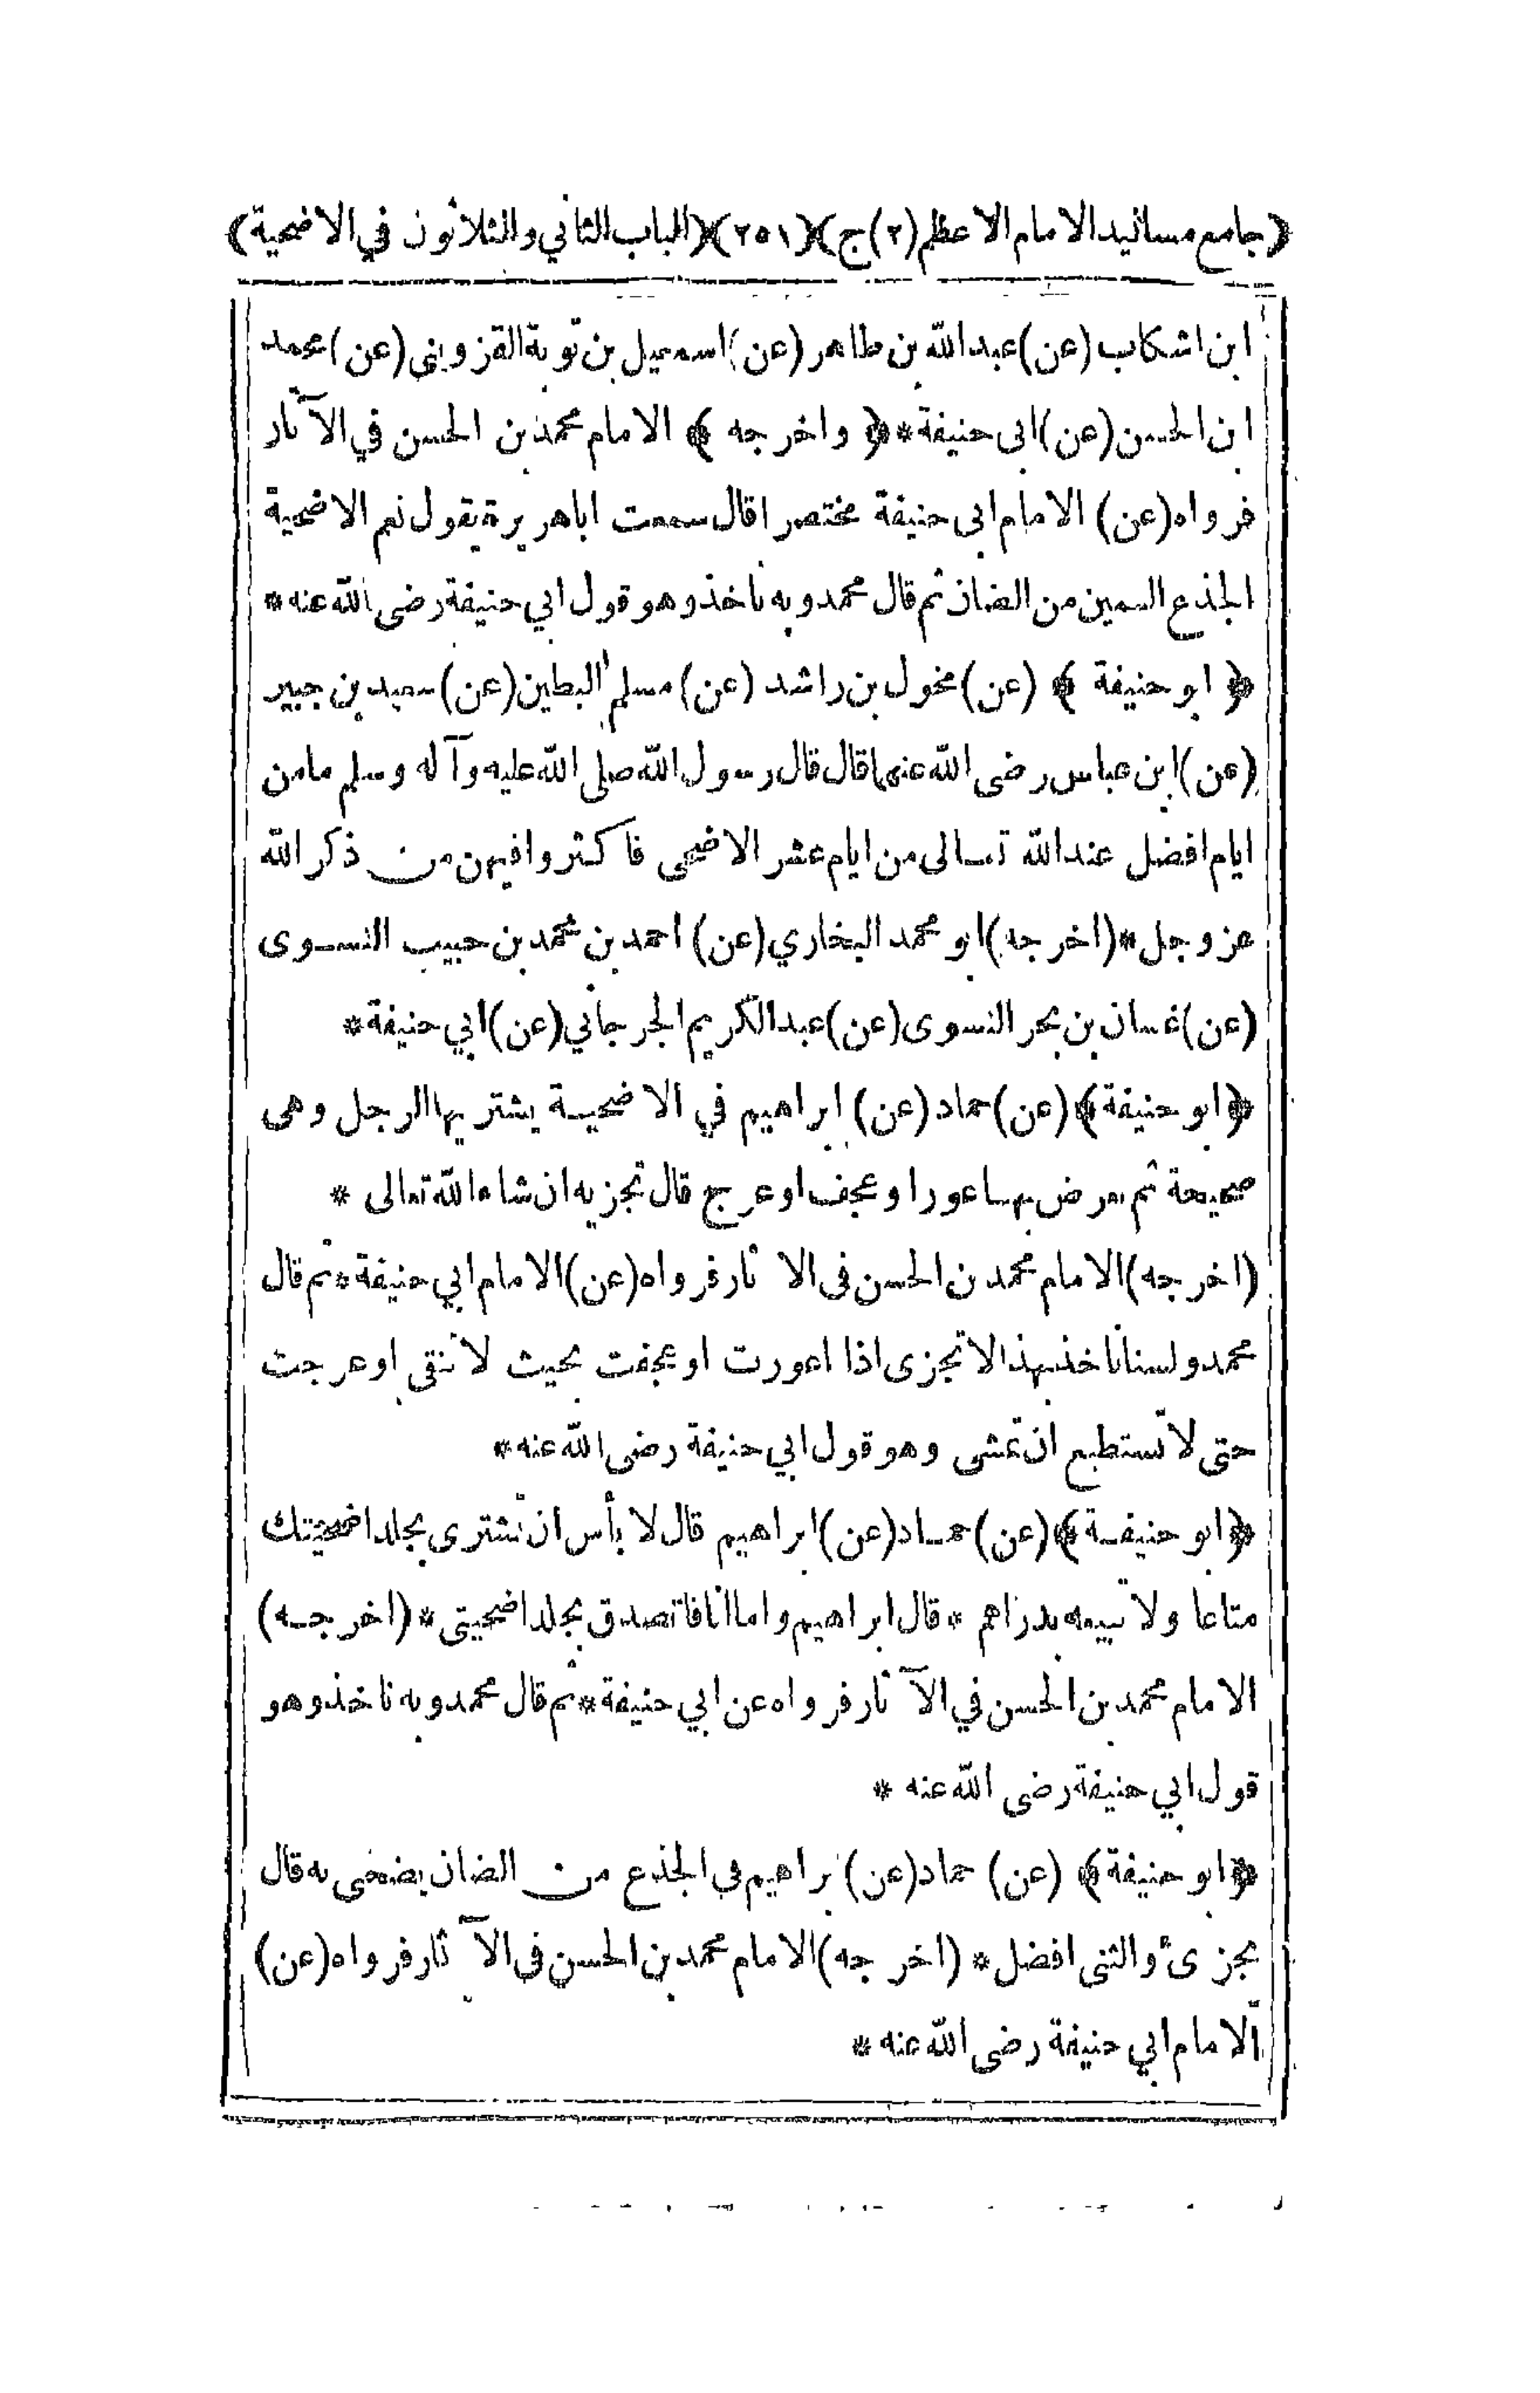 ﴿جامع مسانيد الامام الاعظم (٢) ج﴾ ﴿٢٥١﴾ ﴿الباب الثاني والثلاثون في الاضحية﴾
ابن اشكاب (عن) عبد الله بن طاهر (عن) اسمعيل بن توبة القزويني (عن) محمد
ابن الحسن (عن) ابى حنيفة * ﴿ واخرجه ﴾ الامام محمد بن الحسن في الآثار
فرواه (عن) الامام ابى حنيفة مختصرا قال سمعت اباهريرة يقول نعم الاضحية
الجذع السمين من الضان ثم قال محمد وبه ناخذ وهو قول ابي حنيفة رضى الله عنه *
﴿ ابو حنيفة ﴾ (عن) مخول بن راشد (عن) مسلم البطين (عن) سعيد بن جبير
(عن) ابن عباس رضى الله عنهما قال قال رسول الله صلى الله عليه وآله وسلم ما من
ايام افضل عند الله تعالى من ايام عشر الاضحى فاكثروا فيهن من ذكر الله
عز وجل * (اخرجه) ابو محمد البخاري (عن) احمد بن محمد بن حبيب النسوى
(عن) غسان بن بحر النسوى (عن) عبد الكريم الجرجاني (عن) ابي حنيفة *
﴿ابو حنيفة﴾ (عن) حماد (عن) ابراهيم في الاضحية يشتريها الرجل وهى
صحيحة ثم يعرض بها عور او عجف او عرج قال تجزيه ان شاء الله تعالى *
(اخرجه) الامام محمد بن الحسن فى الاثار فرواه (عن) الامام ابي حنيفة * ثم قال
محمد ولسنا ناخذ بهذا لا تجزى اذا اعورت او عجفت بحيث لا تنقى او عرجت
حتى لا تستطيع ان تمشى وهو قول ابي حنيفة رضى الله عنه *
﴿ابو حنيفة﴾ (عن) حماد (عن) ابراهيم قال لا بأس ان تشترى بجلد اضحيتك
متاعا ولا تبيعه بدراهم * قال ابراهيم واما انا فاتصدق بجلد اضحيتى * (اخرجه)
الامام محمد بن الحسن في الآثار فرواه عن ابي حنيفة * ثم قال محمد وبه ناخذ وهو
قول ابي حنيفة رضى الله عنه *
﴿ابو حنيفة﴾ (عن) حماد (عن) ابراهيم في الجذع من الضان يضحى به قال
يجزئ والثنى افضل * (اخرجه) الامام محمد بن الحسن فى الآثار فرواه (عن)
الامام ابي حنيفة رضى الله عنه *